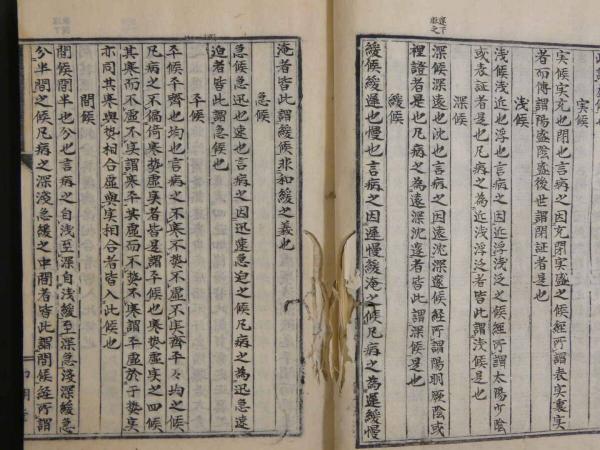 實候
実候実充也閉也言病之因充閉実盛之候經所謂表実裏実
者而傳謂陽盛陰盛後世謂閉証者是也
浅候
浅候浅近也浮也言病之因近浮浅泛之候經所謂太陽少陰
或表証者是也凡病之為近浅浮泛者皆此謂浅候是也
深候
深候深遠也邃也言病之因遠沈深邃候經所謂陽明厥陰或
裡證者是也凡病之為遠深沈邃者皆此謂深候是也
緩候
緩候緩遲也慢也言病之因遲慢緩淹之候凡病之為遲緩慢
淹者皆此謂緩候非和緩之義也
急候
急候急迅也速也言病之因迅速急迫之候凡病之為迅急速
迫者皆此謂急候也
平候
平候平齊也均也言病之不寒不熱不虛不実齊平々均之候
凡病之不偏倚寒熱虛実者皆是謂平候也寒熱虛実之四候
其寒而不虛不実謂寒平其實而不熱不寒謂平虛於于熱実
亦同其寒與熱相合虛與実相合者皆入此候也
間候
間候間半也分也言病之自浅至深自浅緩至深急浅深緩急
分半間之候凡病之深浅急緩之中間者皆此謂間候經所謂